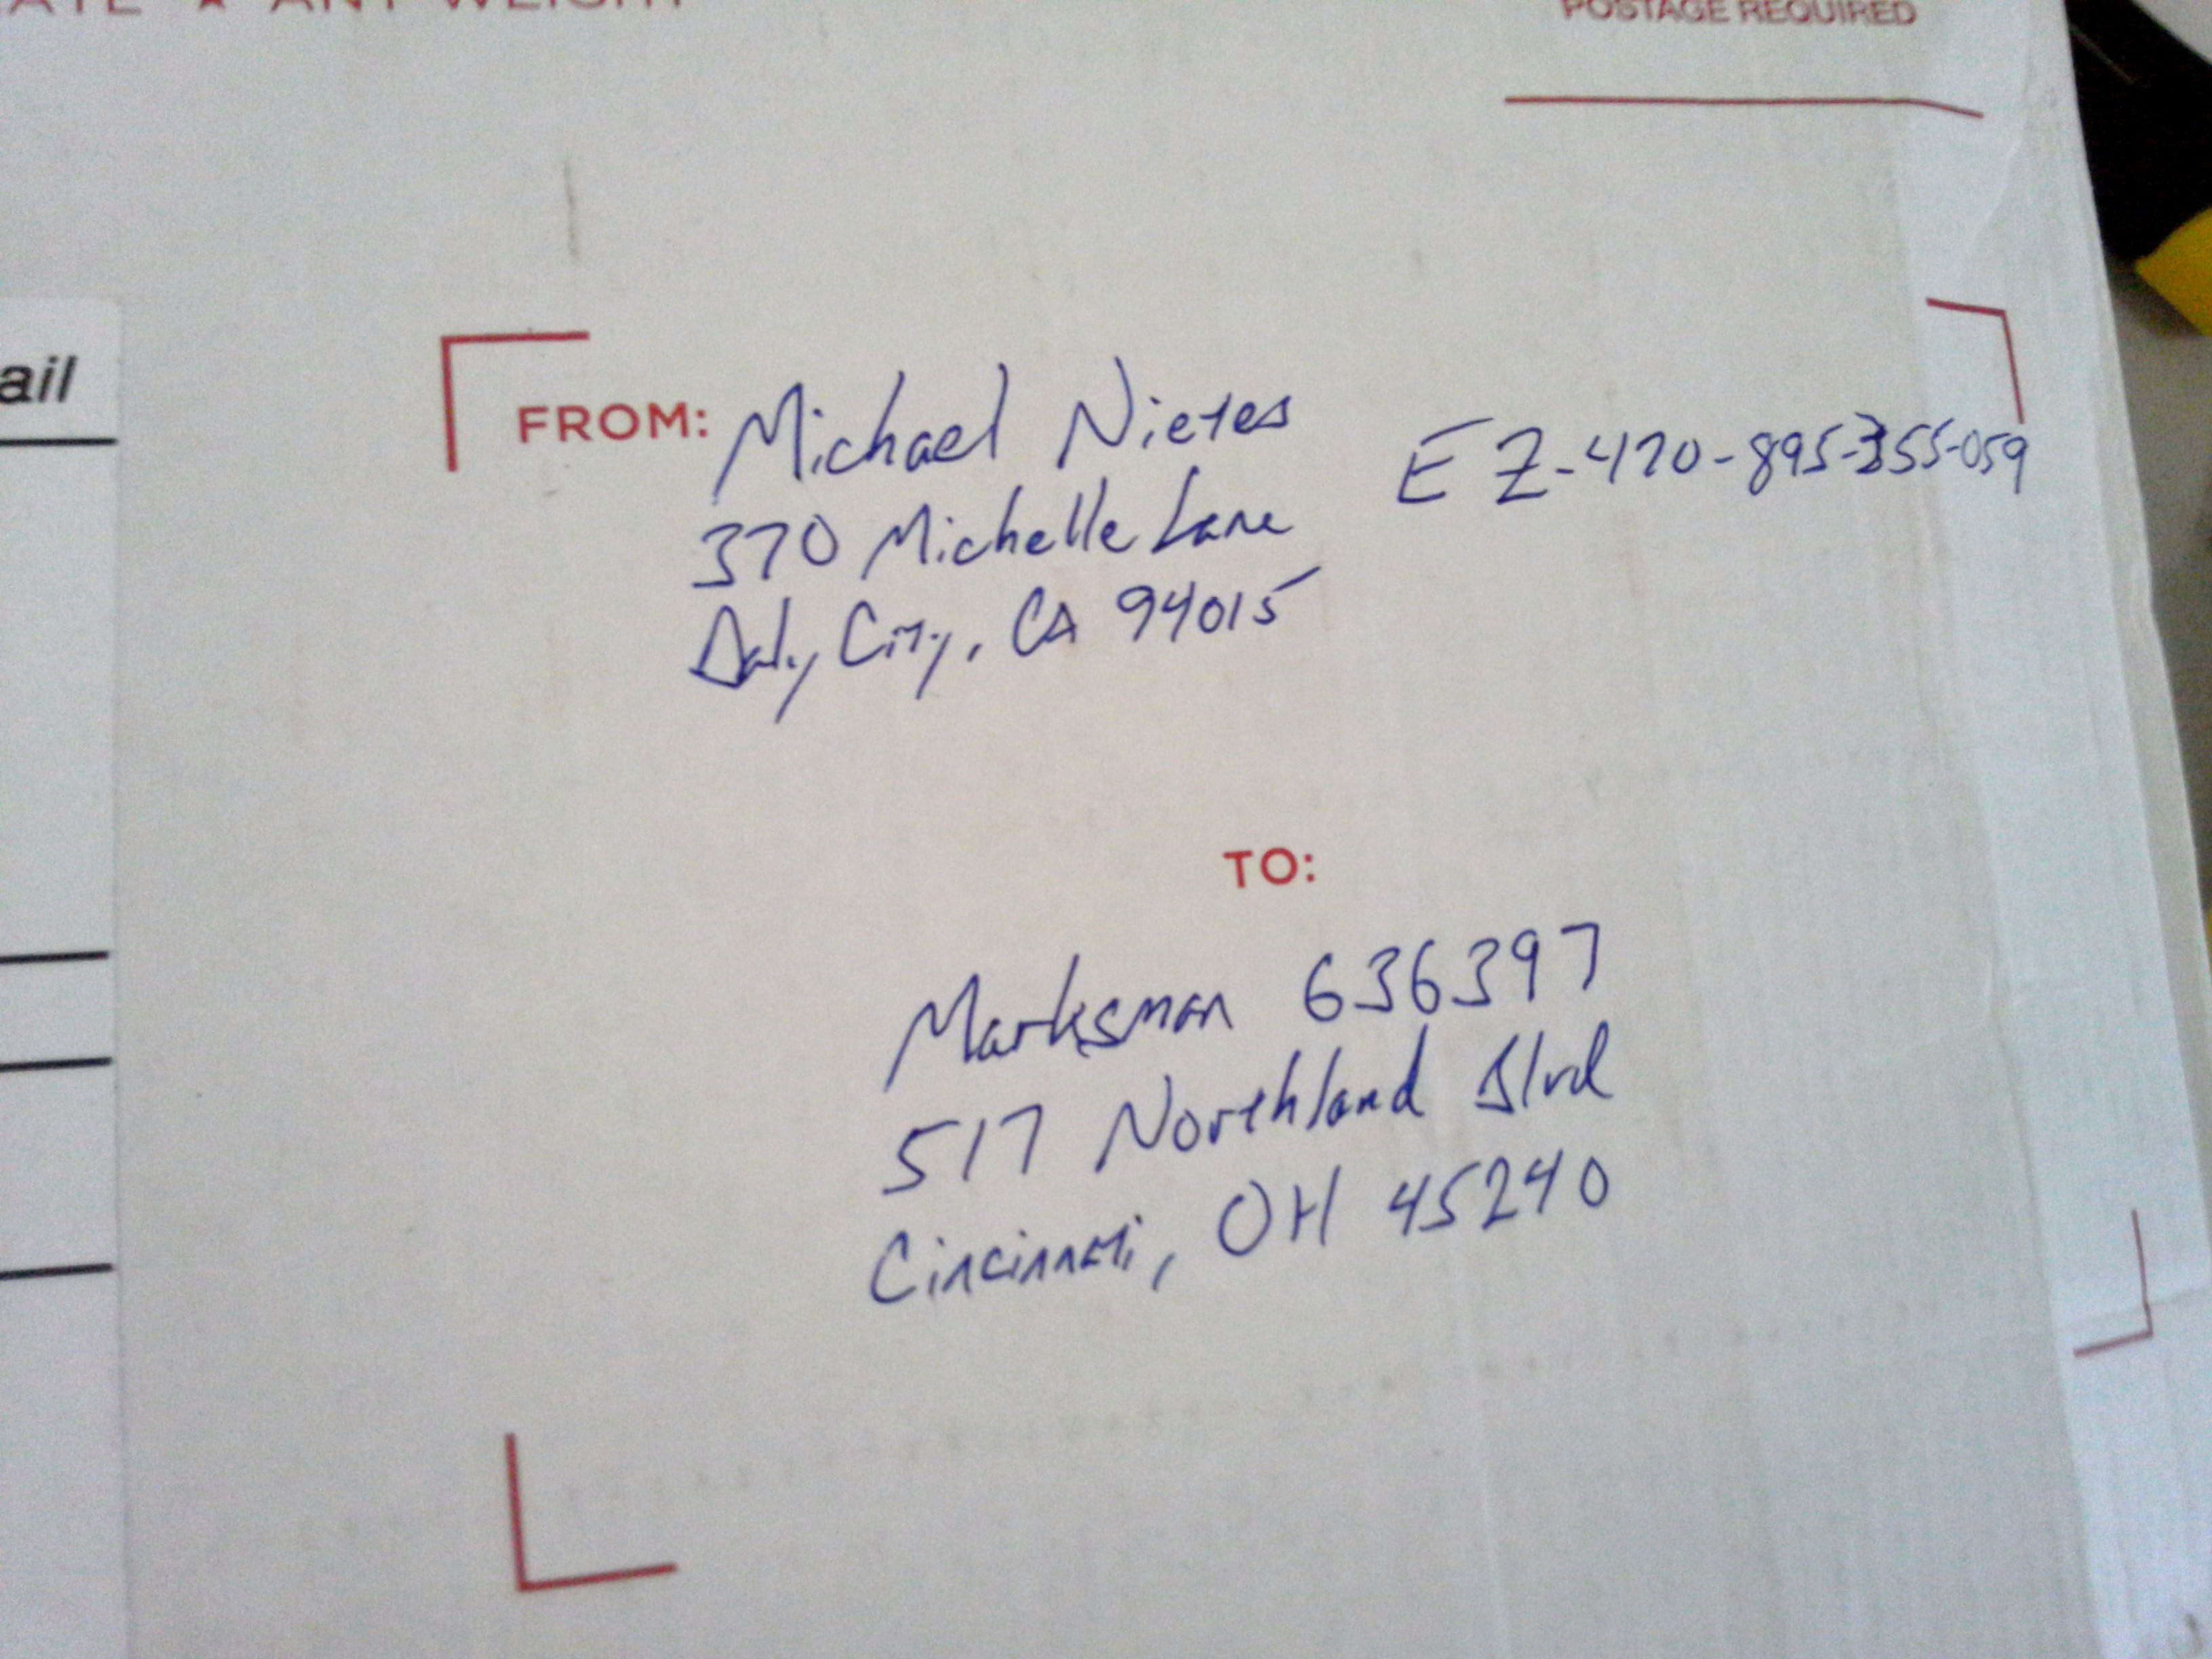 ATE ★ ANY WEIGHT
POSTAGE REQUIRED
ail
FROM: Michael Nietes
EZ-470-895-355-059
370 Michelle Lane
Daly City, CA 94015
TO:
Marksman 636397
517 Northland Blvd
Cincinnati, OH 45240